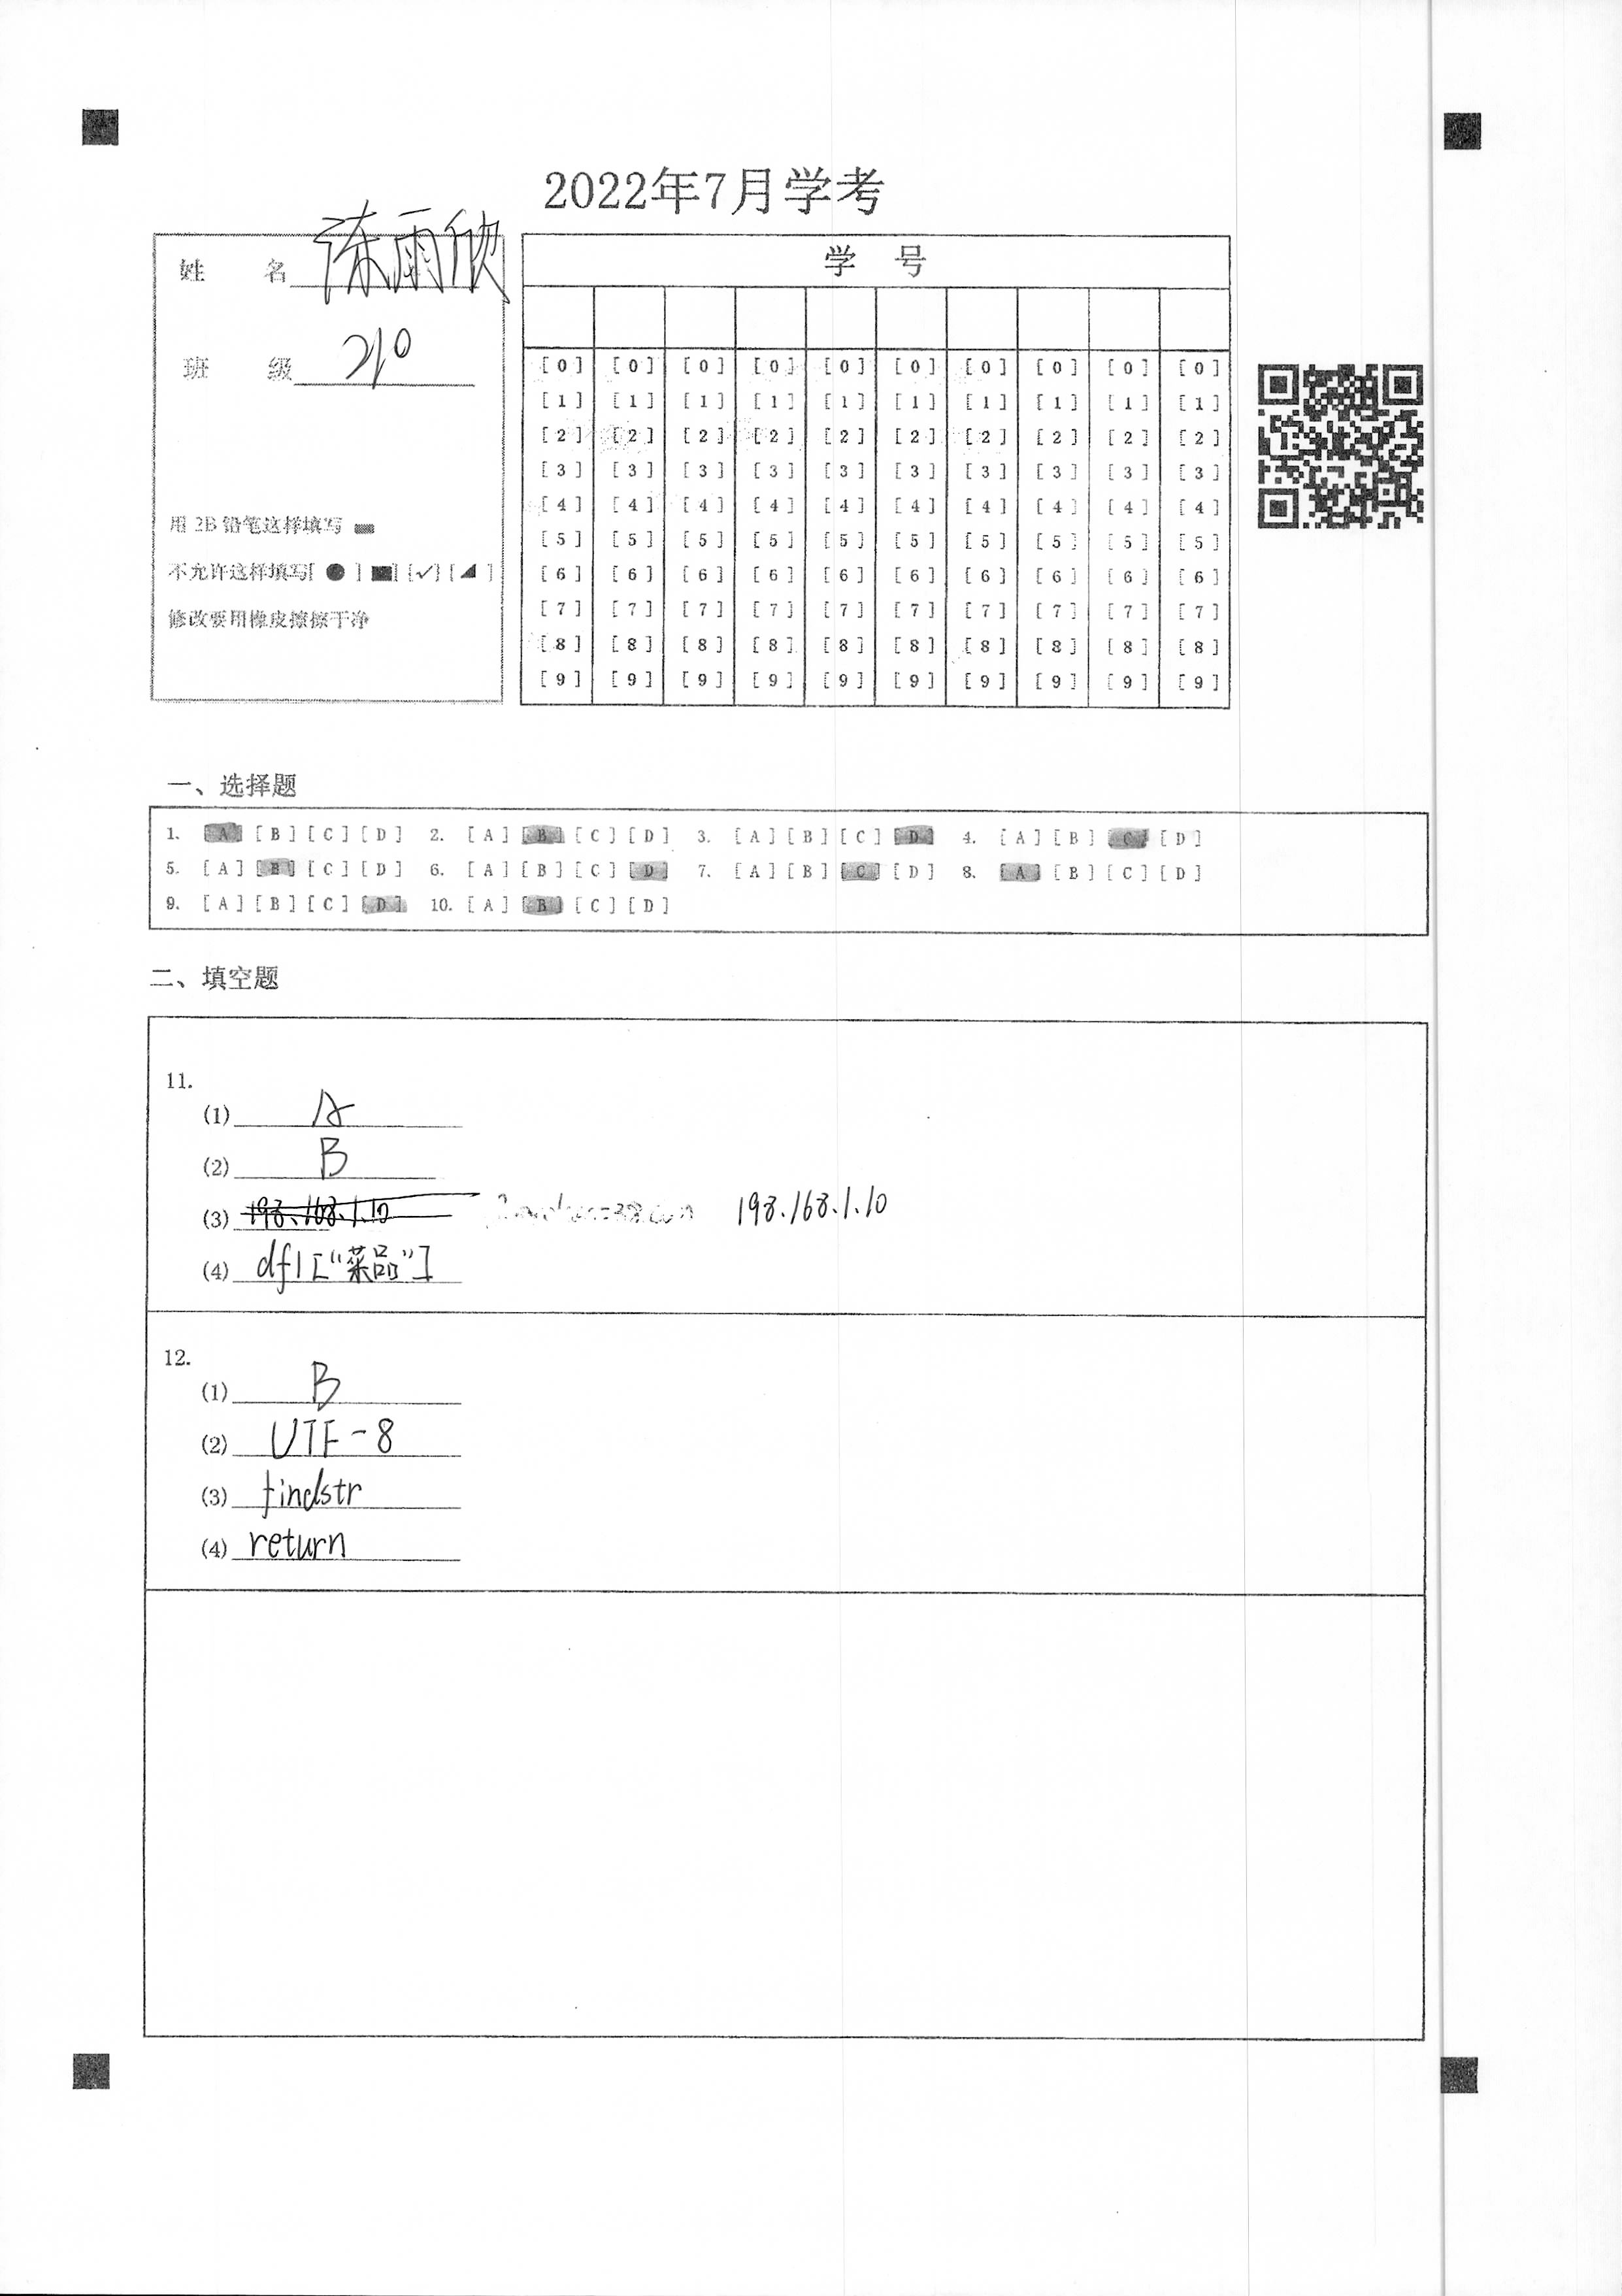 2022年7月学考
姓 名 陈雨欣
班 级 210
用 2B 铅笔这样填写
不允许这样填写[ ● ] [■] [✓] [◢ ]
修改要用橡皮擦擦干净
学 号
[0] [0] [0] [0] [0] [0] [0] [0] [0] [0]
[1] [1] [1] [1] [1] [1] [1] [1] [1] [1]
[2] [2] [2] [2] [2] [2] [2] [2] [2] [2]
[3] [3] [3] [3] [3] [3] [3] [3] [3] [3]
[4] [4] [4] [4] [4] [4] [4] [4] [4] [4]
[5] [5] [5] [5] [5] [5] [5] [5] [5] [5]
[6] [6] [6] [6] [6] [6] [6] [6] [6] [6]
[7] [7] [7] [7] [7] [7] [7] [7] [7] [7]
[8] [8] [8] [8] [8] [8] [8] [8] [8] [8]
[9] [9] [9] [9] [9] [9] [9] [9] [9] [9]
一、选择题
1. [A] [B] [C] [D] 2. [A] [B] [C] [D] 3. [A] [B] [C] [D] 4. [A] [B] [C] [D]
5. [A] [B] [C] [D] 6. [A] [B] [C] [D] 7. [A] [B] [C] [D] 8. [A] [B] [C] [D]
9. [A] [B] [C] [D] 10. [A] [B] [C] [D]
二、填空题
11.
(1) A
(2) B
(3) 198.168.1.10 198.168.1.10
(4) df1["菜品"]
12.
(1) B
(2) UTF-8
(3) findstr
(4) return